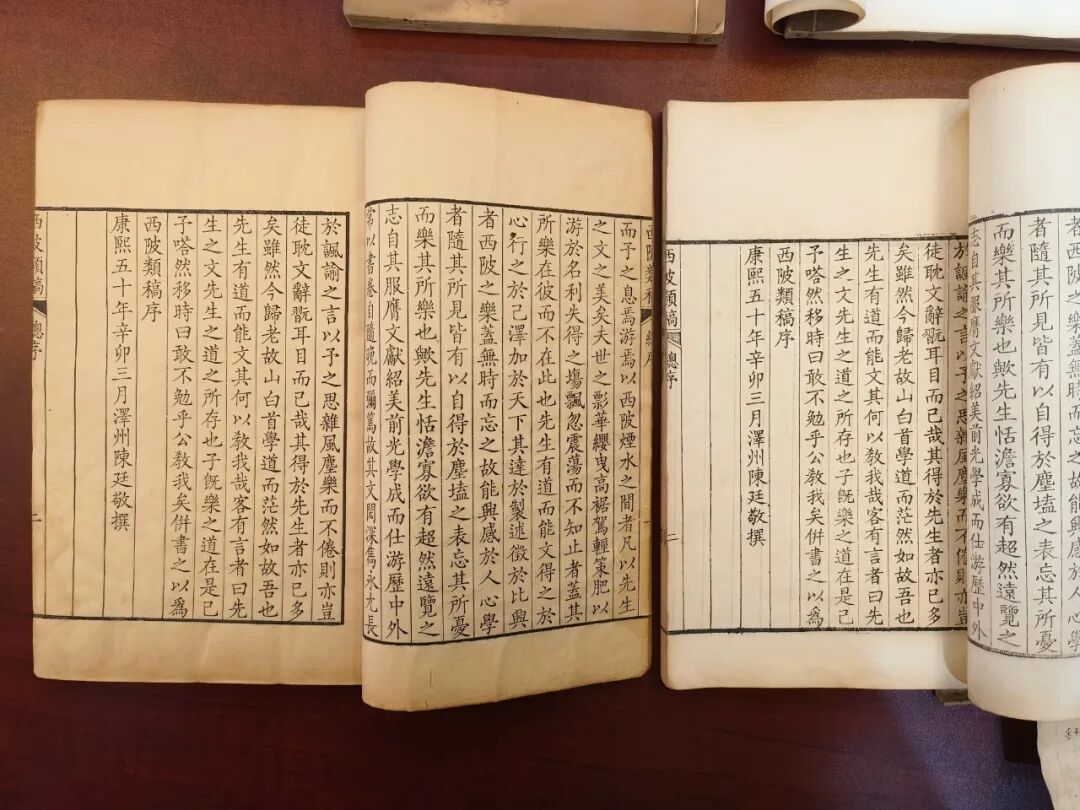 西陂類稿 總序 一
而予之息焉游焉以西陂煙水之間者凡以先生
之文之美矣夫世之彯華纓曳高裾駕輕策肥以
游於名利失得之塲飄忽震蕩而不知止者蓋其
所樂在彼而不在此也先生有道而能文得之於
心行之於己澤加於天下其達於製述徵於比興
者西陂之樂蓋無時而忘之故能興感於人心學
者隨其所見皆有以自得於塵壒之表忘其所憂
而樂其所樂也歟先生恬澹寡欲有超然遠覽之
志自其服膺文獻紹美前光學成而仕游歷中外
常以書卷自隨晚而彌篤故其文閎深雋永尤長
於諷諭之言以予之思雜風塵樂而不倦則亦豈
徒耽文辭翫耳目而已哉其得於先生者亦已多
矣雖然今歸老故山白首學道而茫然如故吾也
先生有道而能文其何以敎我哉客有言者曰先
生之文先生之道之所存也子旣樂之道在是已
予嗒然移時曰敢不勉乎公敎我矣併書之以爲
西陂類稿序
康熙五十年辛卯三月澤州陳廷敬撰
西陂類稿 總序 二
者西陂之樂蓋無時而忘之故能興感於人心學
者隨其所見皆有以自得於塵壒之表忘其所憂
而樂其所樂也歟先生恬澹寡欲有超然遠覽之
志自其服膺文獻紹美前光學成而仕游歷中外
於諷諭之言以予之思雜風塵樂而不倦則亦豈
徒耽文辭翫耳目而已哉其得於先生者亦已多
矣雖然今歸老故山白首學道而茫然如故吾也
先生有道而能文其何以敎我哉客有言者曰先
生之文先生之道之所存也子旣樂之道在是已
予嗒然移時曰敢不勉乎公敎我矣併書之以爲
西陂類稿序
康熙五十年辛卯三月澤州陳廷敬撰
西陂類稿 總序 二